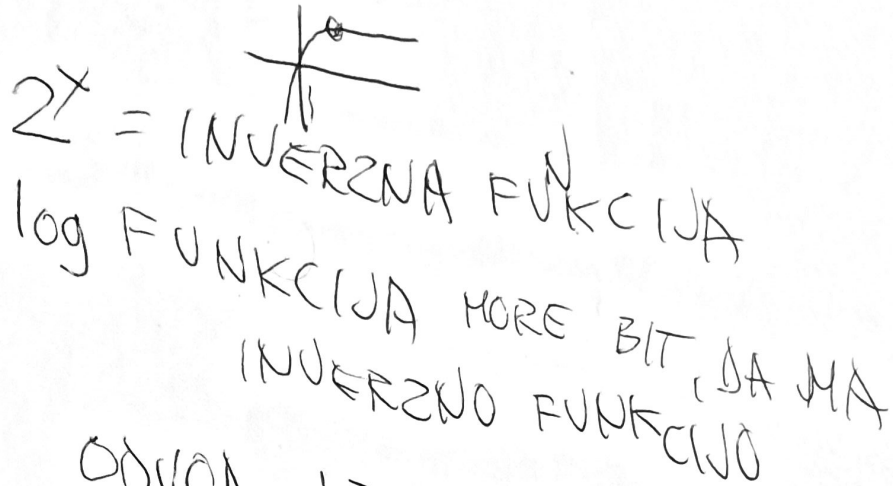 2^x = INVERZNA FUNKCIJA
log FUNKCIJA MORE BIT, DA MA
INVERZNO FUNKCIJO